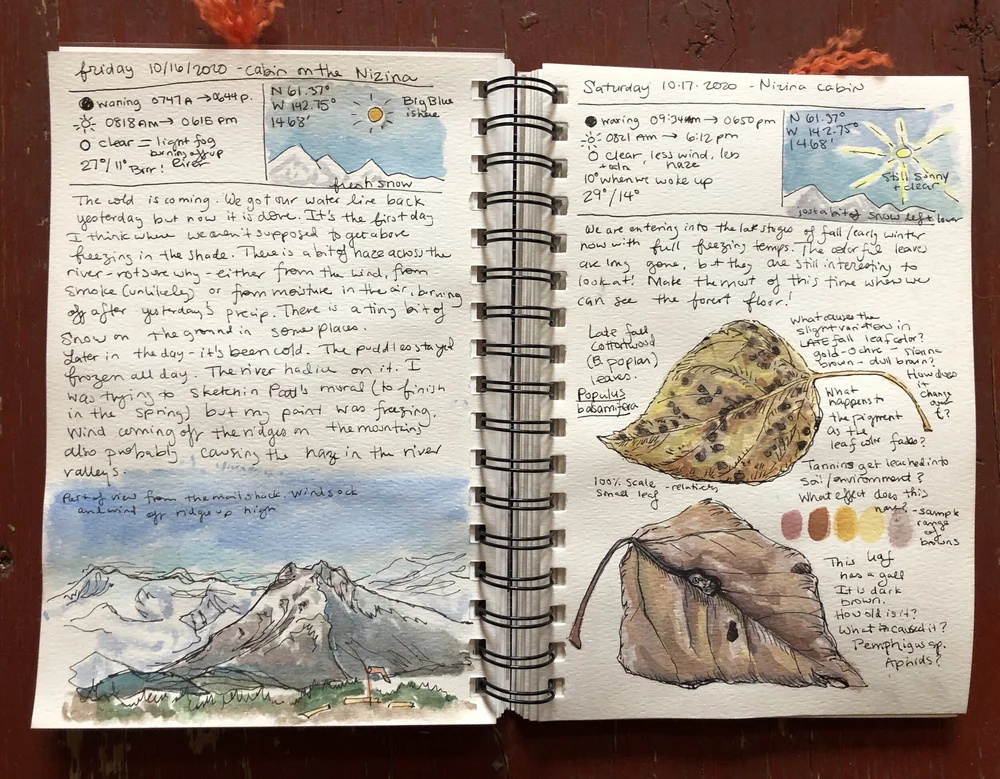 friday 10/16/2020 - cabin on the Nizina
waning 0747A → 0644p.
0818AM → 0615 PM
clear = light fog
burning off up
River
27°/11° Brrr!
N 61.37°
W 142.75°
1468'
Big Blue
is here
fresh snow
The cold is coming. We got our water line back
yesterday but now it is done. It's the first day
I think where we aren't supposed to get above
freezing in the shade. There is a bit of haze across the
river - not sure why - either from the wind, from
smoke (unlikely) or from moisture in the air, burning
off after yesterday's precip. There is a tiny bit of
snow on the ground in some places.
Later in the day - it's been cold. The puddles stayed
frozen all day. The river had ice on it. I
was trying to sketch in Patt's mural (to finish
in the spring) but my paint was freezing.
Wind coming off the ridges on the mountains
also probably causing the haze in the river
valleys.
Part of view from the mail shack. Wind sock
and wind off ridge up high
Saturday 10.17.2020 - Nizina cabin
waxing 09:34am → 0650pm
0821 AM → 6:12 pm
clear, less wind, less
haze
10° when we woke up
29°/14°
N 61.37°
W 142.75°
1468'
Still sunny
+ clear
just a bit of snow left over
We are entering into the late stages of fall/early winter
now with full freezing temps. The colorful leaves
are long gone, but they are still interesting to
look at! Make the most of this time when we
can see the forest floor!
Late fall
Cottonwood
(B. poplar)
leaves.
Populus
balsamifera
What causes the
slight variations in
LATE fall leaf color?
gold - ochre - sienna
brown - dull brown?
How does
it
change
over
t?
What
happens to
the pigment
as the
leaf color fades?
Tannins get leached into
soil/environment?
What effect does this
have?
- sample
range
of
browns
100% scale - relatively
small leaf
This leaf
has a gall
It is dark
brown.
How old is it?
What caused it?
Pemphigus sp.
Aphids?